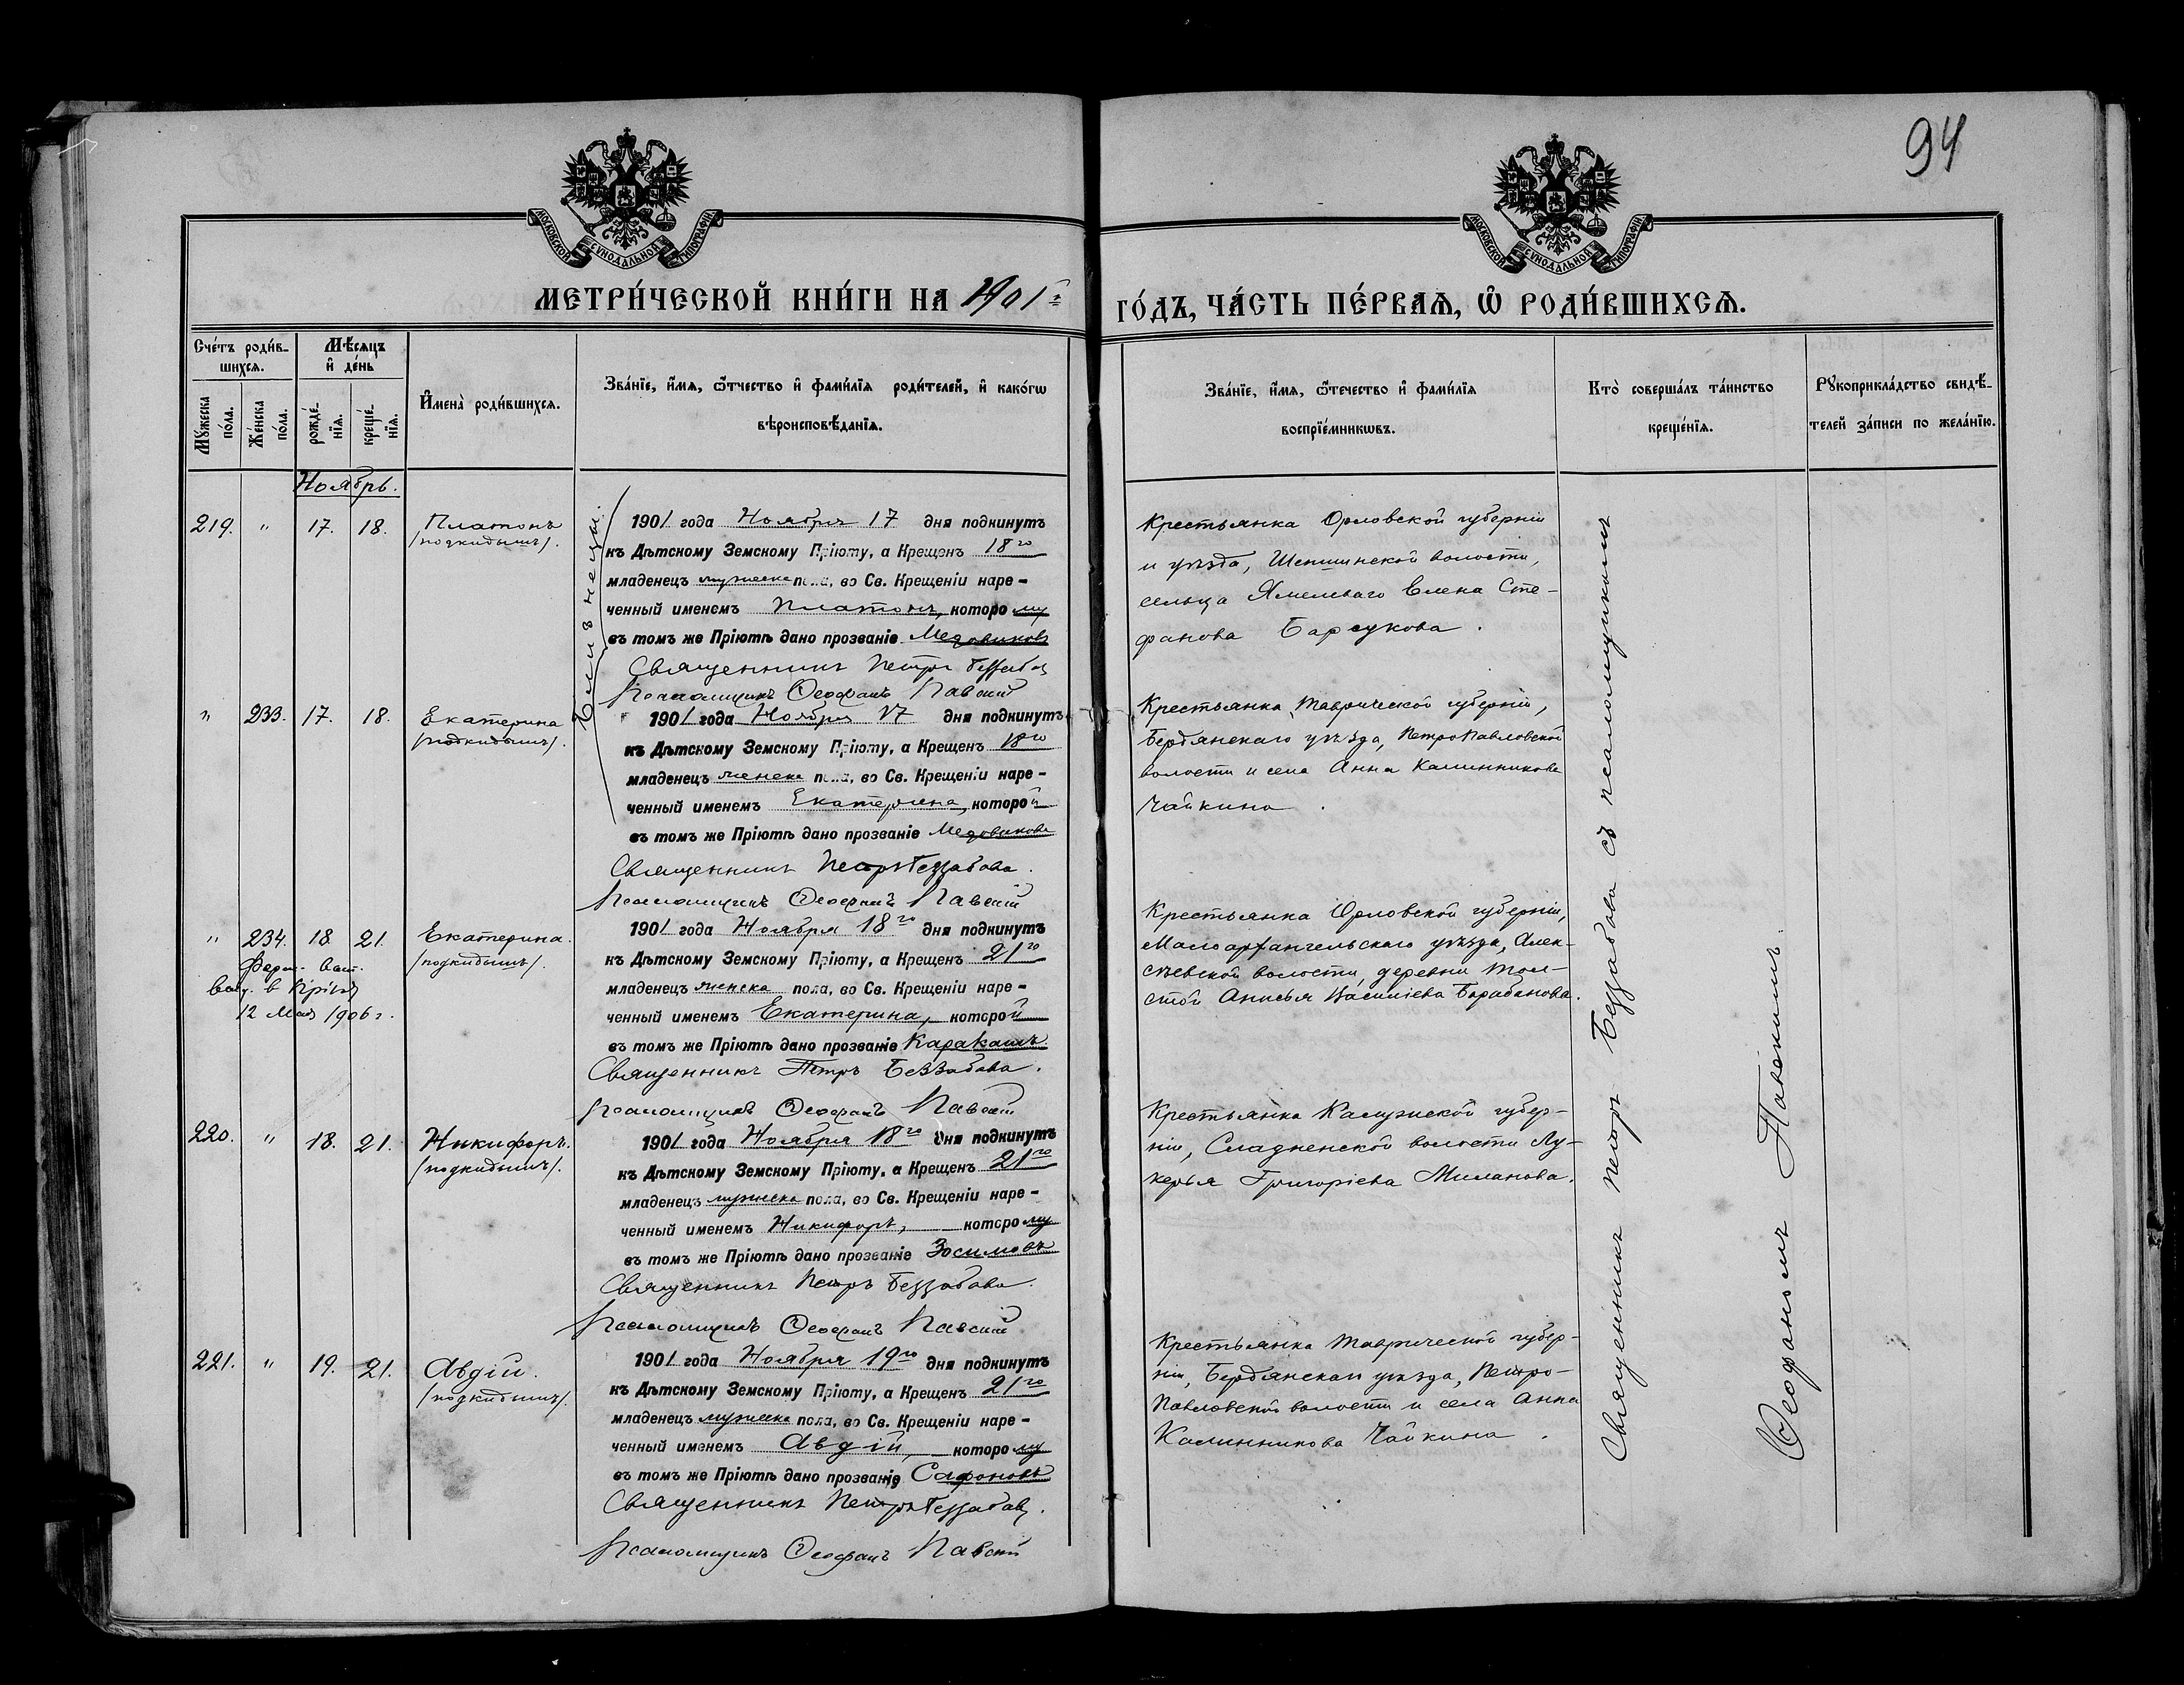 94
МОСКОВСКОЙ СѴНОДАЛЬНОЙ ТИПОГРАФІИ
МОСКОВСКОЙ СѴНОДАЛЬНОЙ ТИПОГРАФІИ
МЕТРИ́ЧЕСКОЙ КНИ́ГИ НА 1901 г
ГО́ДЪ, ЧА́СТЬ ПЕ́РВАѦ, Ѿ РОДИ́ВШИХСѦ.
Сче́тъ роди́в-
шихсѧ.
Мꙋ́жеска по́ла.
Же́нска по́ла.
Мѣ́сѧцъ
и҆ де́нь
рожде́-
нїѧ.
креще́-
нїѧ.
И҆мена̀ роди́вшихсѧ.
Зва́нїе, и҆́мѧ, ѻ҆́тчество и҆ фами́лїѧ роди́телей, и҆ како́гѡ
вѣроисповѣ́данїѧ.
Зва́нїе, и҆́мѧ, ѻ҆́течество и҆ фами́лїѧ
воспрїе́мникѡвъ.
Кто̀ соверша́лъ та́инство
креще́нїѧ.
Рꙋкоприкла́дство свидѣ́-
телей за́писи по жела́нїю.
Ноябрь.
219. " 17. 18. Платонъ
/подкидышъ/.
Близнецы.
1901 года Ноября 17 дня подкинутъ
къ Дѣтскому Земскому Пріюту, а Крещенъ 18го
младенецъ мужеска пола, во Св. Крещеніи наре-
ченный именемъ Платонъ, которому
въ томъ же Пріютѣ дано прозваніе Медовиковъ
Священникъ Петръ Беззабова
Псаломщикъ Ѳеофанъ Павскій
Крестьянка Орловской губерніи
и уѣзда, волости,
сельца Елена Сте-
фанова Барсукова.
" 233. 17. 18. Екатерина
/подкидышъ/.
1901 года Ноября 17 дня подкинутъ
къ Дѣтскому Земскому Пріюту, а Крещенъ 18го
младенецъ женска пола, во Св. Крещеніи наре-
ченный именемъ Екатерина, которой
въ томъ же Пріютѣ дано прозваніе Медовикова
Священникъ Петръ Беззабова.
Псаломщикъ Ѳеофанъ Павскій
Крестьянка Таврической губерніи,
Бердянскаго уѣзда, Петропавловской
волости и села Анна Калинникова
Чайкина.
" 234. 18 21. Екатерина.
/подкидышъ/.
12 Мая 1906 г.
1901 года Ноября 18го дня подкинутъ
къ Дѣтскому Земскому Пріюту, а Крещенъ 21го
младенецъ женска пола, во Св. Крещеніи наре-
ченный именемъ Екатерина, которой
въ томъ же Пріютѣ дано прозваніе Каракашъ
Священникъ Петръ Беззабова.
Псаломщикъ Ѳеофанъ Павскій
Крестьянка Орловской губерніи,
Малоархангельскаго уѣзда, Алек-
сѣевской волости, деревни Тол-
стой Анисья Васильева Барабанова.
220. " 18. 21. Никифоръ.
/подкидышъ/.
1901 года Ноября 18го дня подкинутъ
къ Дѣтскому Земскому Пріюту, а Крещенъ 21го
младенецъ мужеска пола, во Св. Крещеніи наре-
ченный именемъ Никифоръ, которому
въ томъ же Пріютѣ дано прозваніе Зосимовъ
Священникъ Петръ Беззабова.
Псаломщикъ Ѳеофанъ Павскій
Крестьянка Калужской губер-
ніи, волости Лу-
керья Григоріева Миланова.
221. " 19. 21. Авдій.
/подкидышъ/.
1901 года Ноября 19го дня подкинутъ
къ Дѣтскому Земскому Пріюту, а Крещенъ 21го
младенецъ мужеска пола, во Св. Крещеніи наре-
ченный именемъ Авдій, которому
въ томъ же Пріютѣ дано прозваніе Сафоновъ
Священникъ Петръ Беззабова.
Псаломщикъ Ѳеофанъ Павскій
Крестьянка Таврической губер-
ніи, Бердянскаго уѣзда, Петро-
Павловской волости и села Анна
Калинникова Чайкина.
Священникъ Петръ Беззабова съ псаломщикомъ
Ѳеофаномъ Павскимъ.